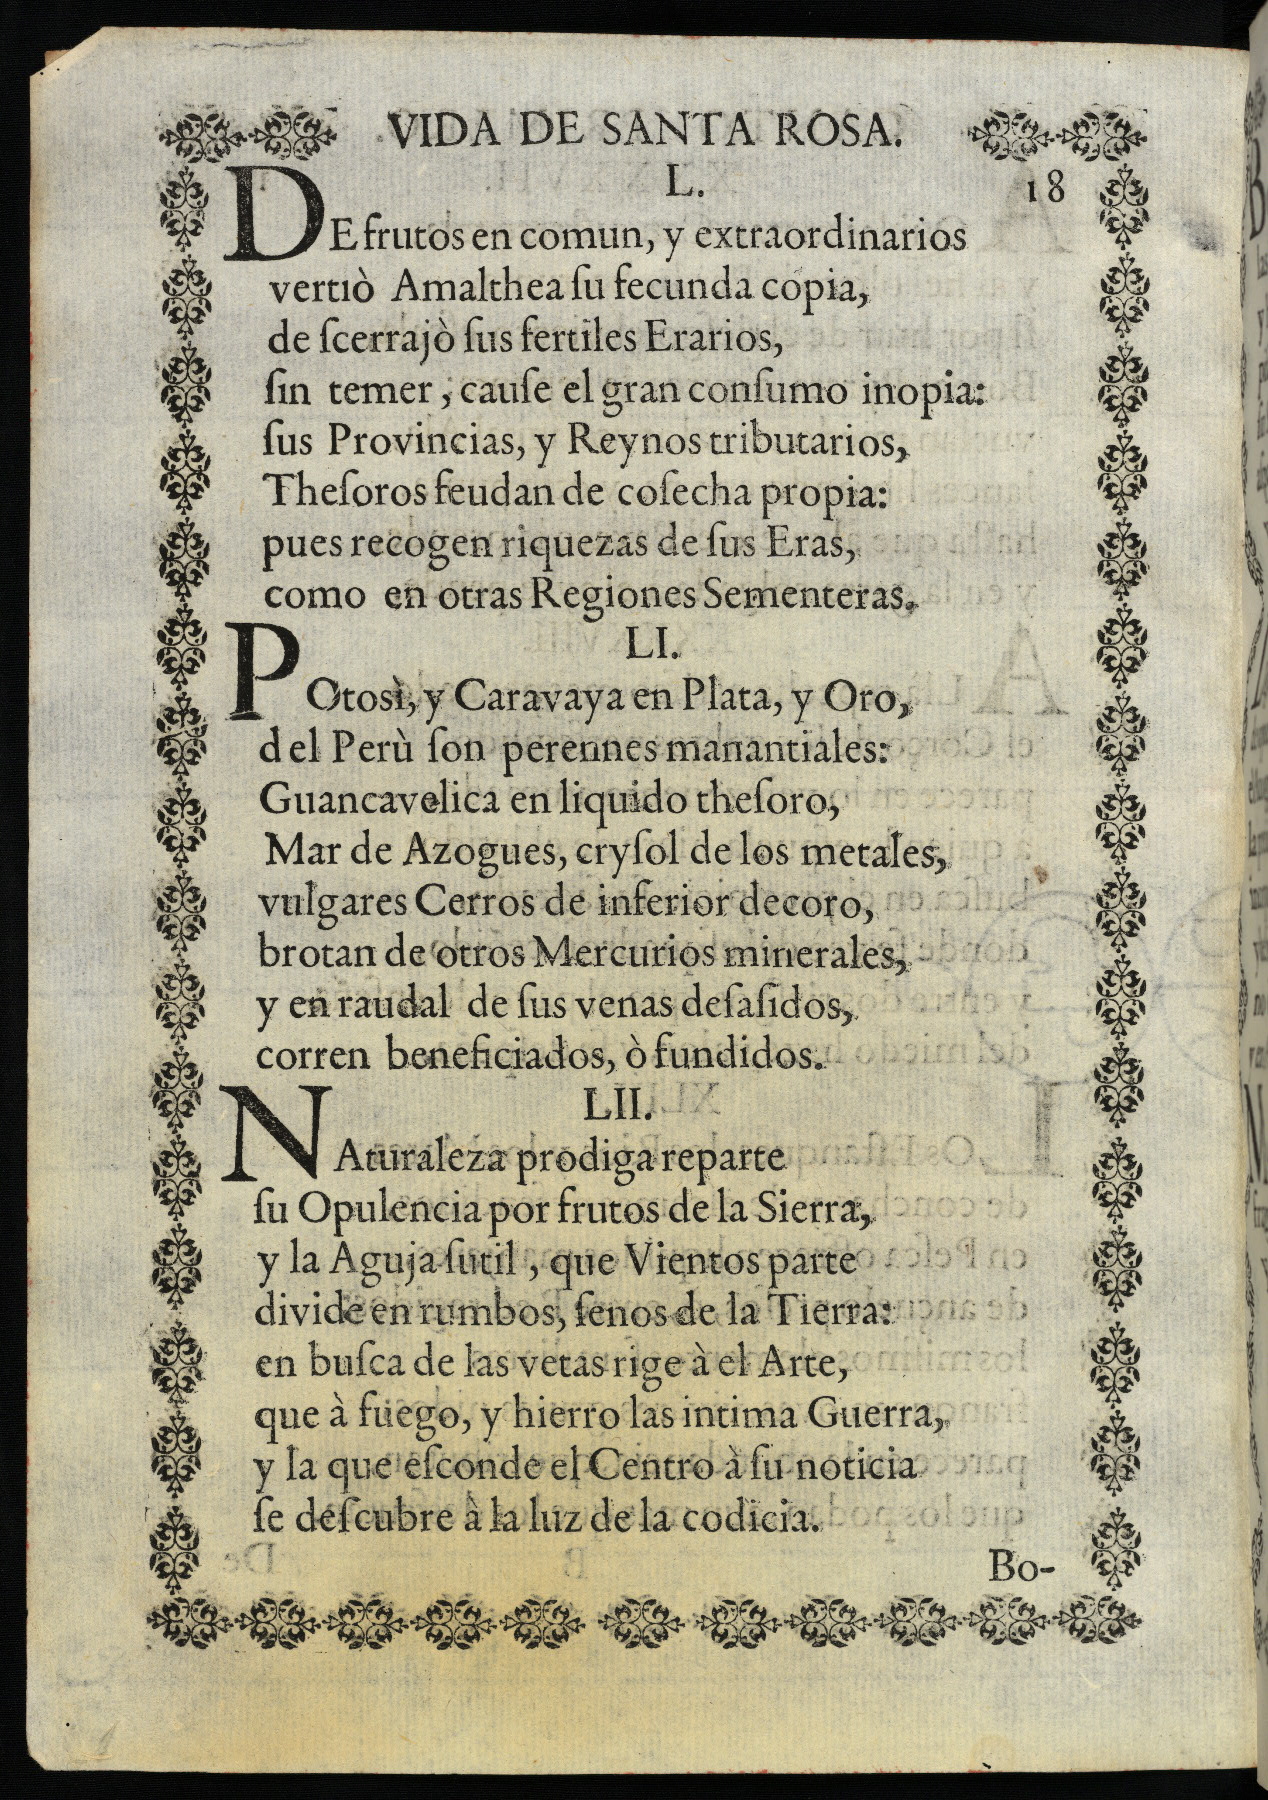 VIDA DE SANTA ROSA.
L.
18
DE frutos en comun, y extraordinarios
vertiò Amalthea ſu fecunda copia,
de ſcerrajò ſus fertiles Erarios,
ſin temer, cauſe el gran conſumo inopia:
ſus Provincias, y Reynos tributarios,
Theſoros feudan de coſecha propia:
pues recogen riquezas de ſus Eras,
como en otras Regiones Sementeras.
LI.
POtosì, y Caravaya en Plata, y Oro,
del Perù ſon perennes manantiales:
Guancavelica en liquido theſoro,
Mar de Azogues, cryſol de los metales,
vulgares Cerros de inferior decoro,
brotan de otros Mercurios minerales,
y en raudal de ſus venas deſaſidos,
corren beneficiados, ò fundidos.
LII.
NAturaleza prodiga reparte
ſu Opulencia por frutos de la Sierra,
y la Aguja ſutil, que Vientos parte
divide en rumbos, ſenos de la Tierra:
en buſca de las vetas rige à el Arte,
que à fuego, y hierro las intima Guerra,
y la que eſconde el Centro à ſu noticia
ſe deſcubre à la luz de la codicia.
Bo-